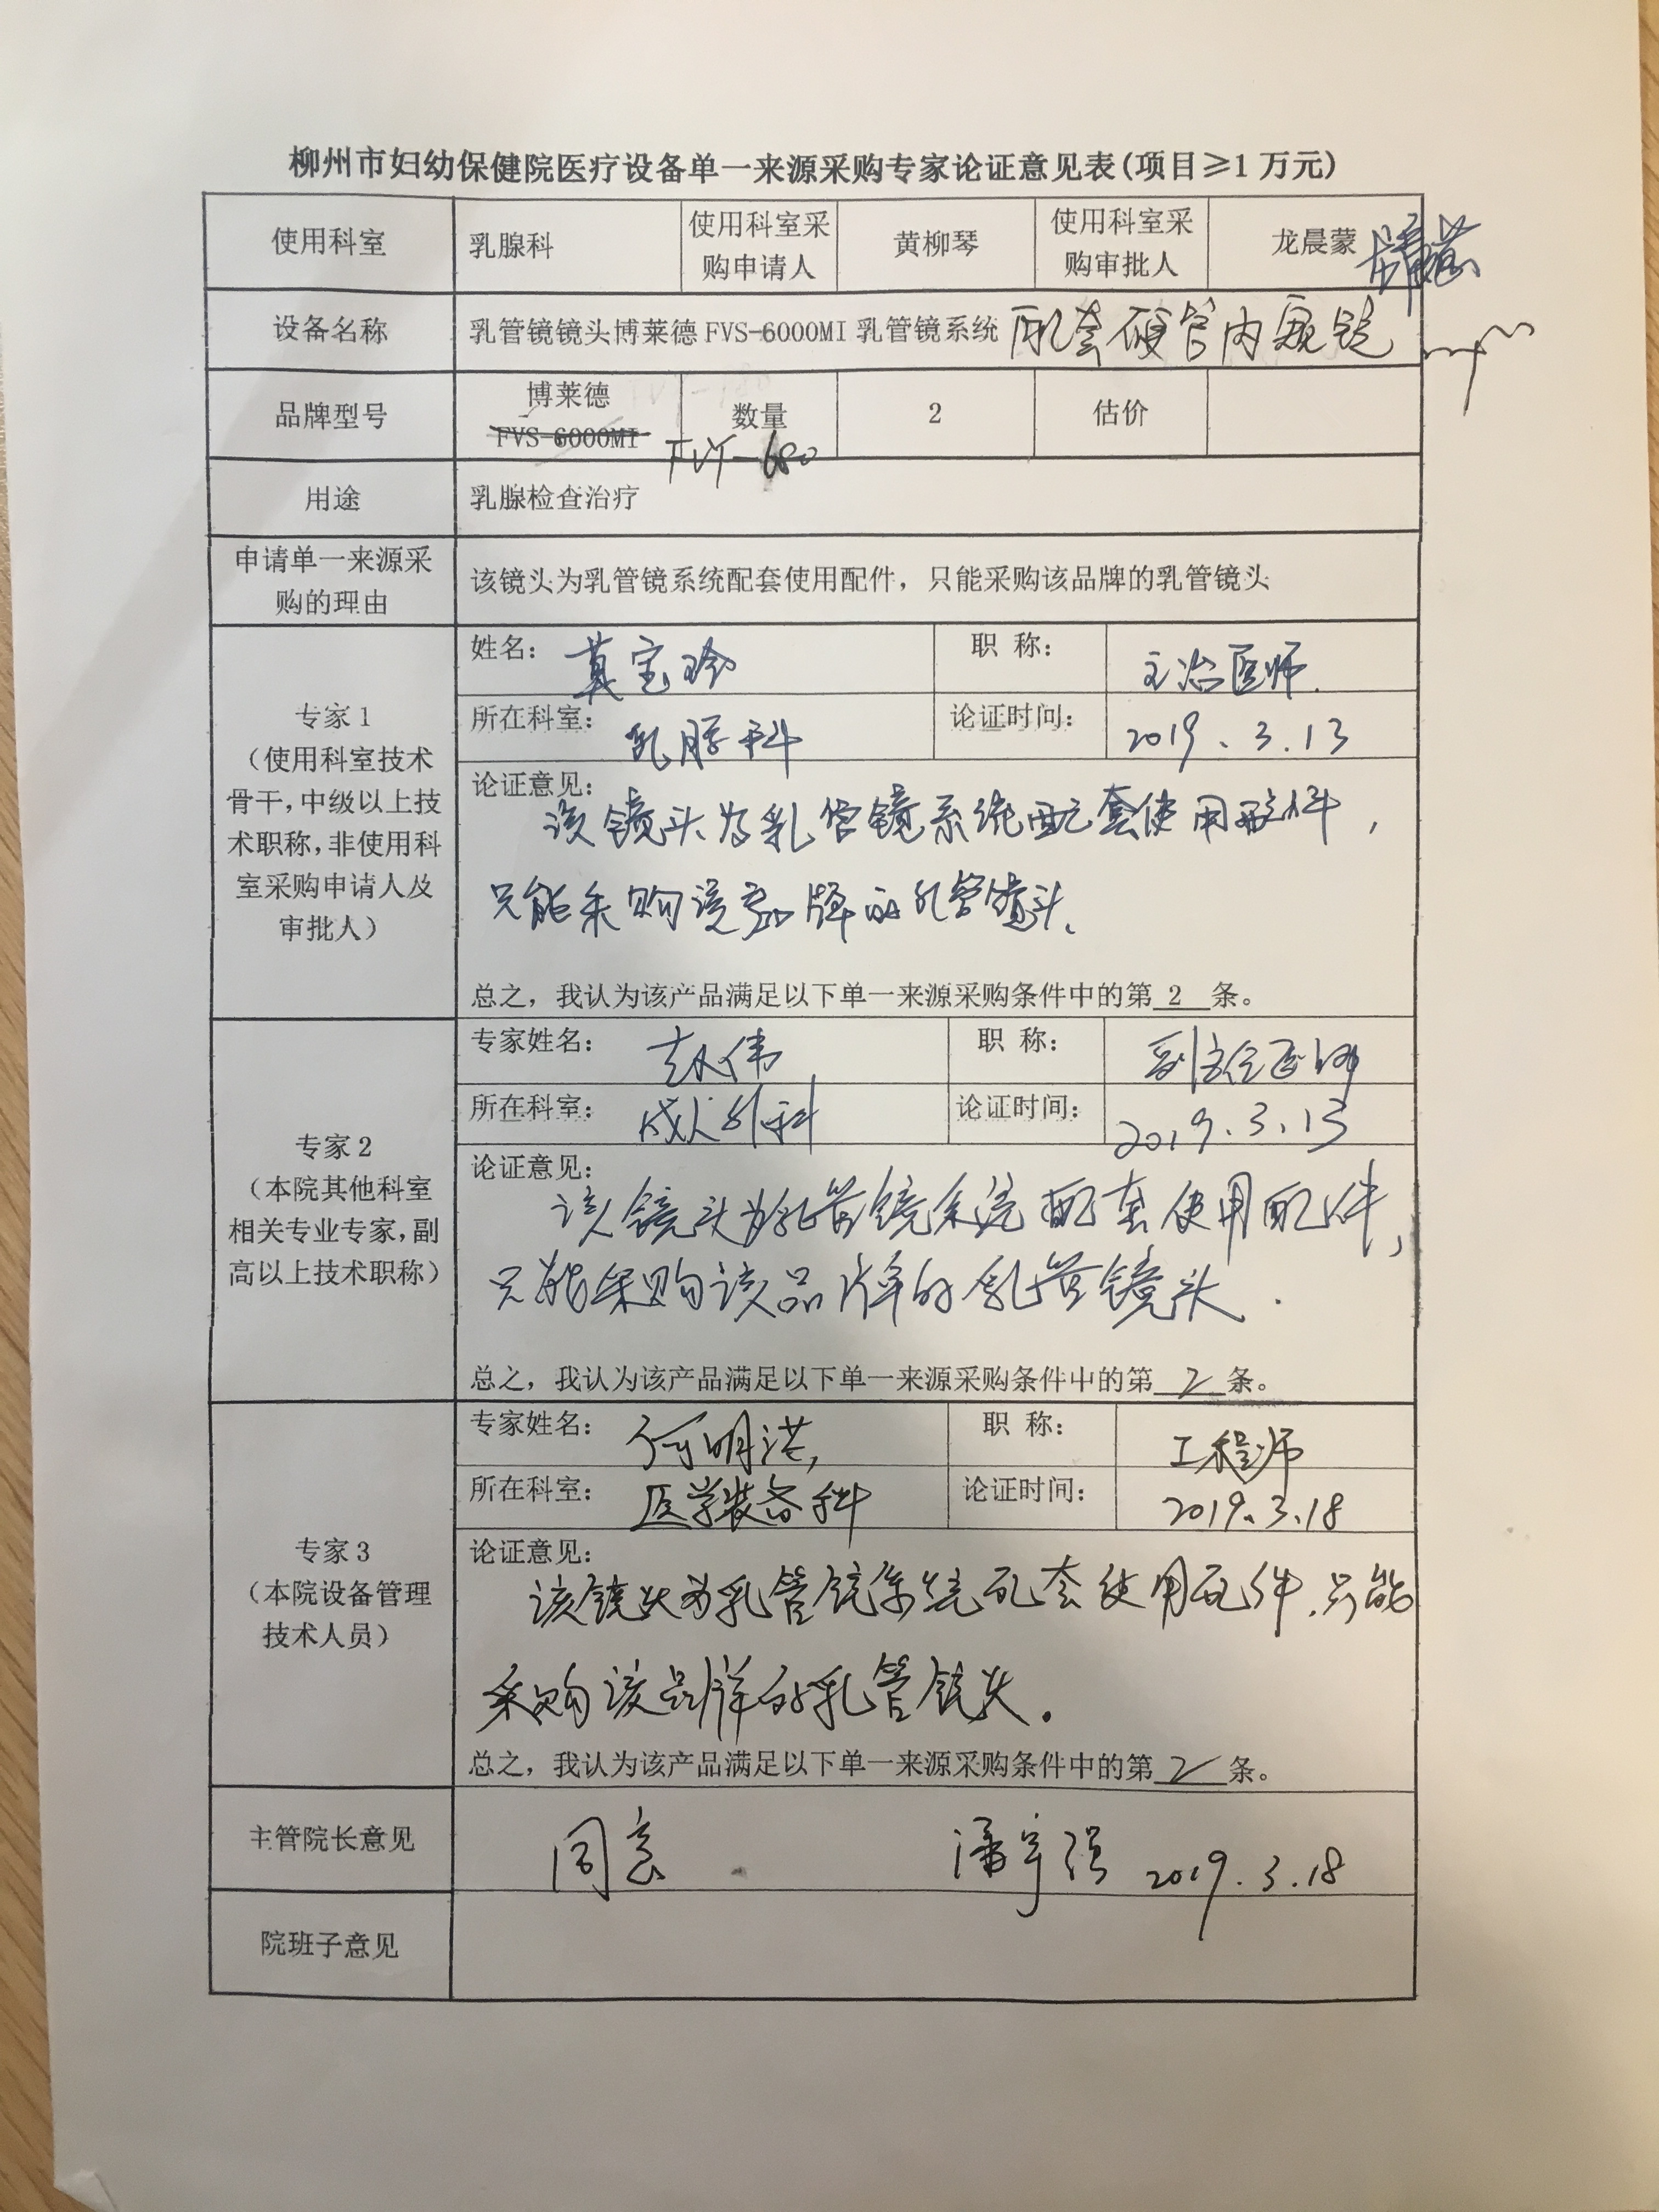 柳州市妇幼保健院医疗设备单一来源采购专家论证意见表(项目≥1万元)
使用科室 乳腺科 使用科室采购申请人 黄柳琴 使用科室采购审批人 龙晨蒙
设备名称 乳管镜镜头博莱德 FVS-6000MI 乳管镜系统 配套硬管内窥镜
品牌型号 博莱德 FVS-6000MI FVY-680 数量 2 估价
用途 乳腺检查治疗
申请单一来源采购的理由 该镜头为乳管镜系统配套使用配件，只能采购该品牌的乳管镜头
专家1
（使用科室技术
骨干，中级以上技
术职称，非使用科
室采购申请人及
审批人）
姓名： 莫宝玲 职 称： 主治医师.
所在科室： 乳腺科 论证时间： 2019.3.13
论证意见：
该镜头为乳管镜系统配套使用配件，
只能采购该品牌的乳管镜头.
总之，我认为该产品满足以下单一来源采购条件中的第 2 条。
专家2
（本院其他科室
相关专业专家，副
高以上技术职称）
专家姓名： 赵伟 职 称： 副主任医师
所在科室： 成人外科 论证时间： 2019.3.13
论证意见：
该镜头为乳管镜系统配套使用配件，
只能采购该品牌的乳管镜头.
总之，我认为该产品满足以下单一来源采购条件中的第 2 条。
专家3
（本院设备管理
技术人员）
专家姓名： 何明 职 称： 工程师
所在科室： 医学装备科 论证时间： 2019.3.18
论证意见：
该镜头为乳管镜系统配套使用配件，只能
采购该品牌的乳管镜头。
总之，我认为该产品满足以下单一来源采购条件中的第 2 条。
主管院长意见 同意 潘宇强 2019.3.18
院班子意见